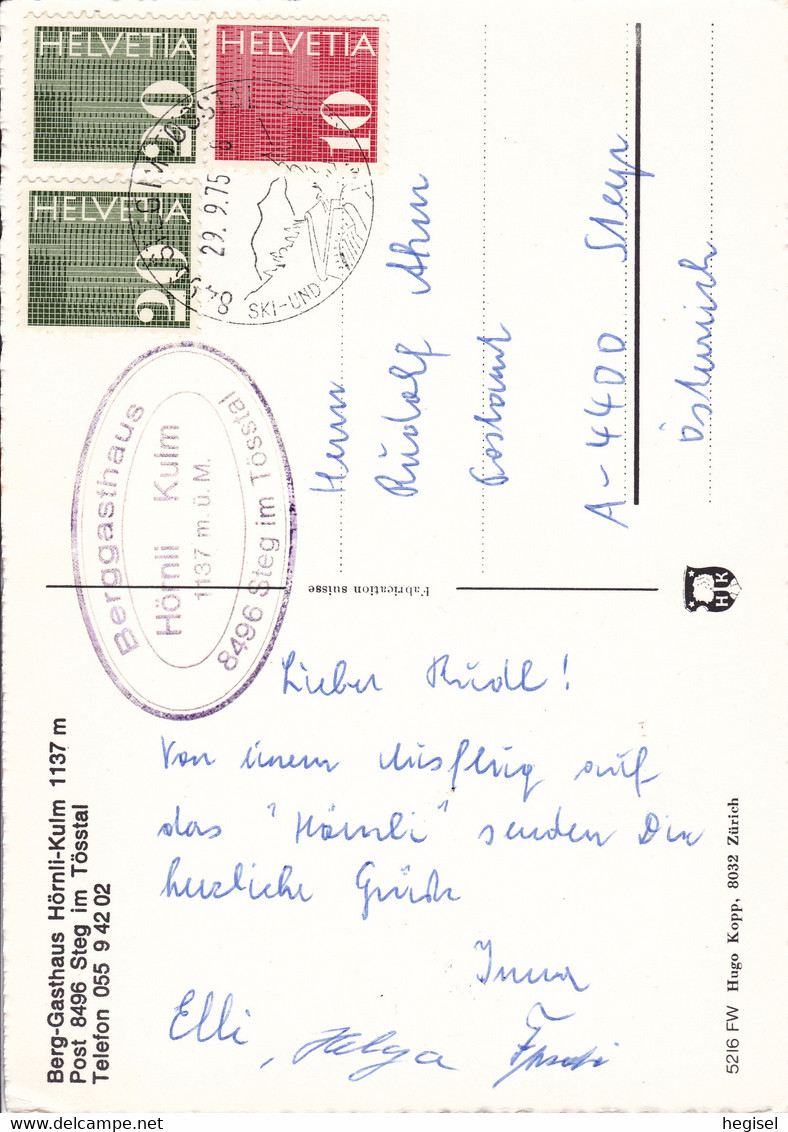 HELVETIA
20
HELVETIA
10
HELVETIA
20
8496 STEG IM TÖSSTAL
29.9.75
SKI-UND
Berggasthaus
Hörnli Kulm
1137 m.ü.M.
8496 Steg im Tösstal
Herrn
Rudolf Ahm
Postamt
A-4400 Steyr
Österreich
Fabrication suisse
HK
Lieber Rudl!
Von einem Ausflug auf
das "Hörnli" senden Dir
herzliche Grüße
Elli, Helga
Berg-Gasthaus Hörnli-Kulm 1137 m
Post 8496 Steg im Tösstal
Telefon 055 9 42 02
5216 FW Hugo Kopp, 8032 Zürich
hegisel